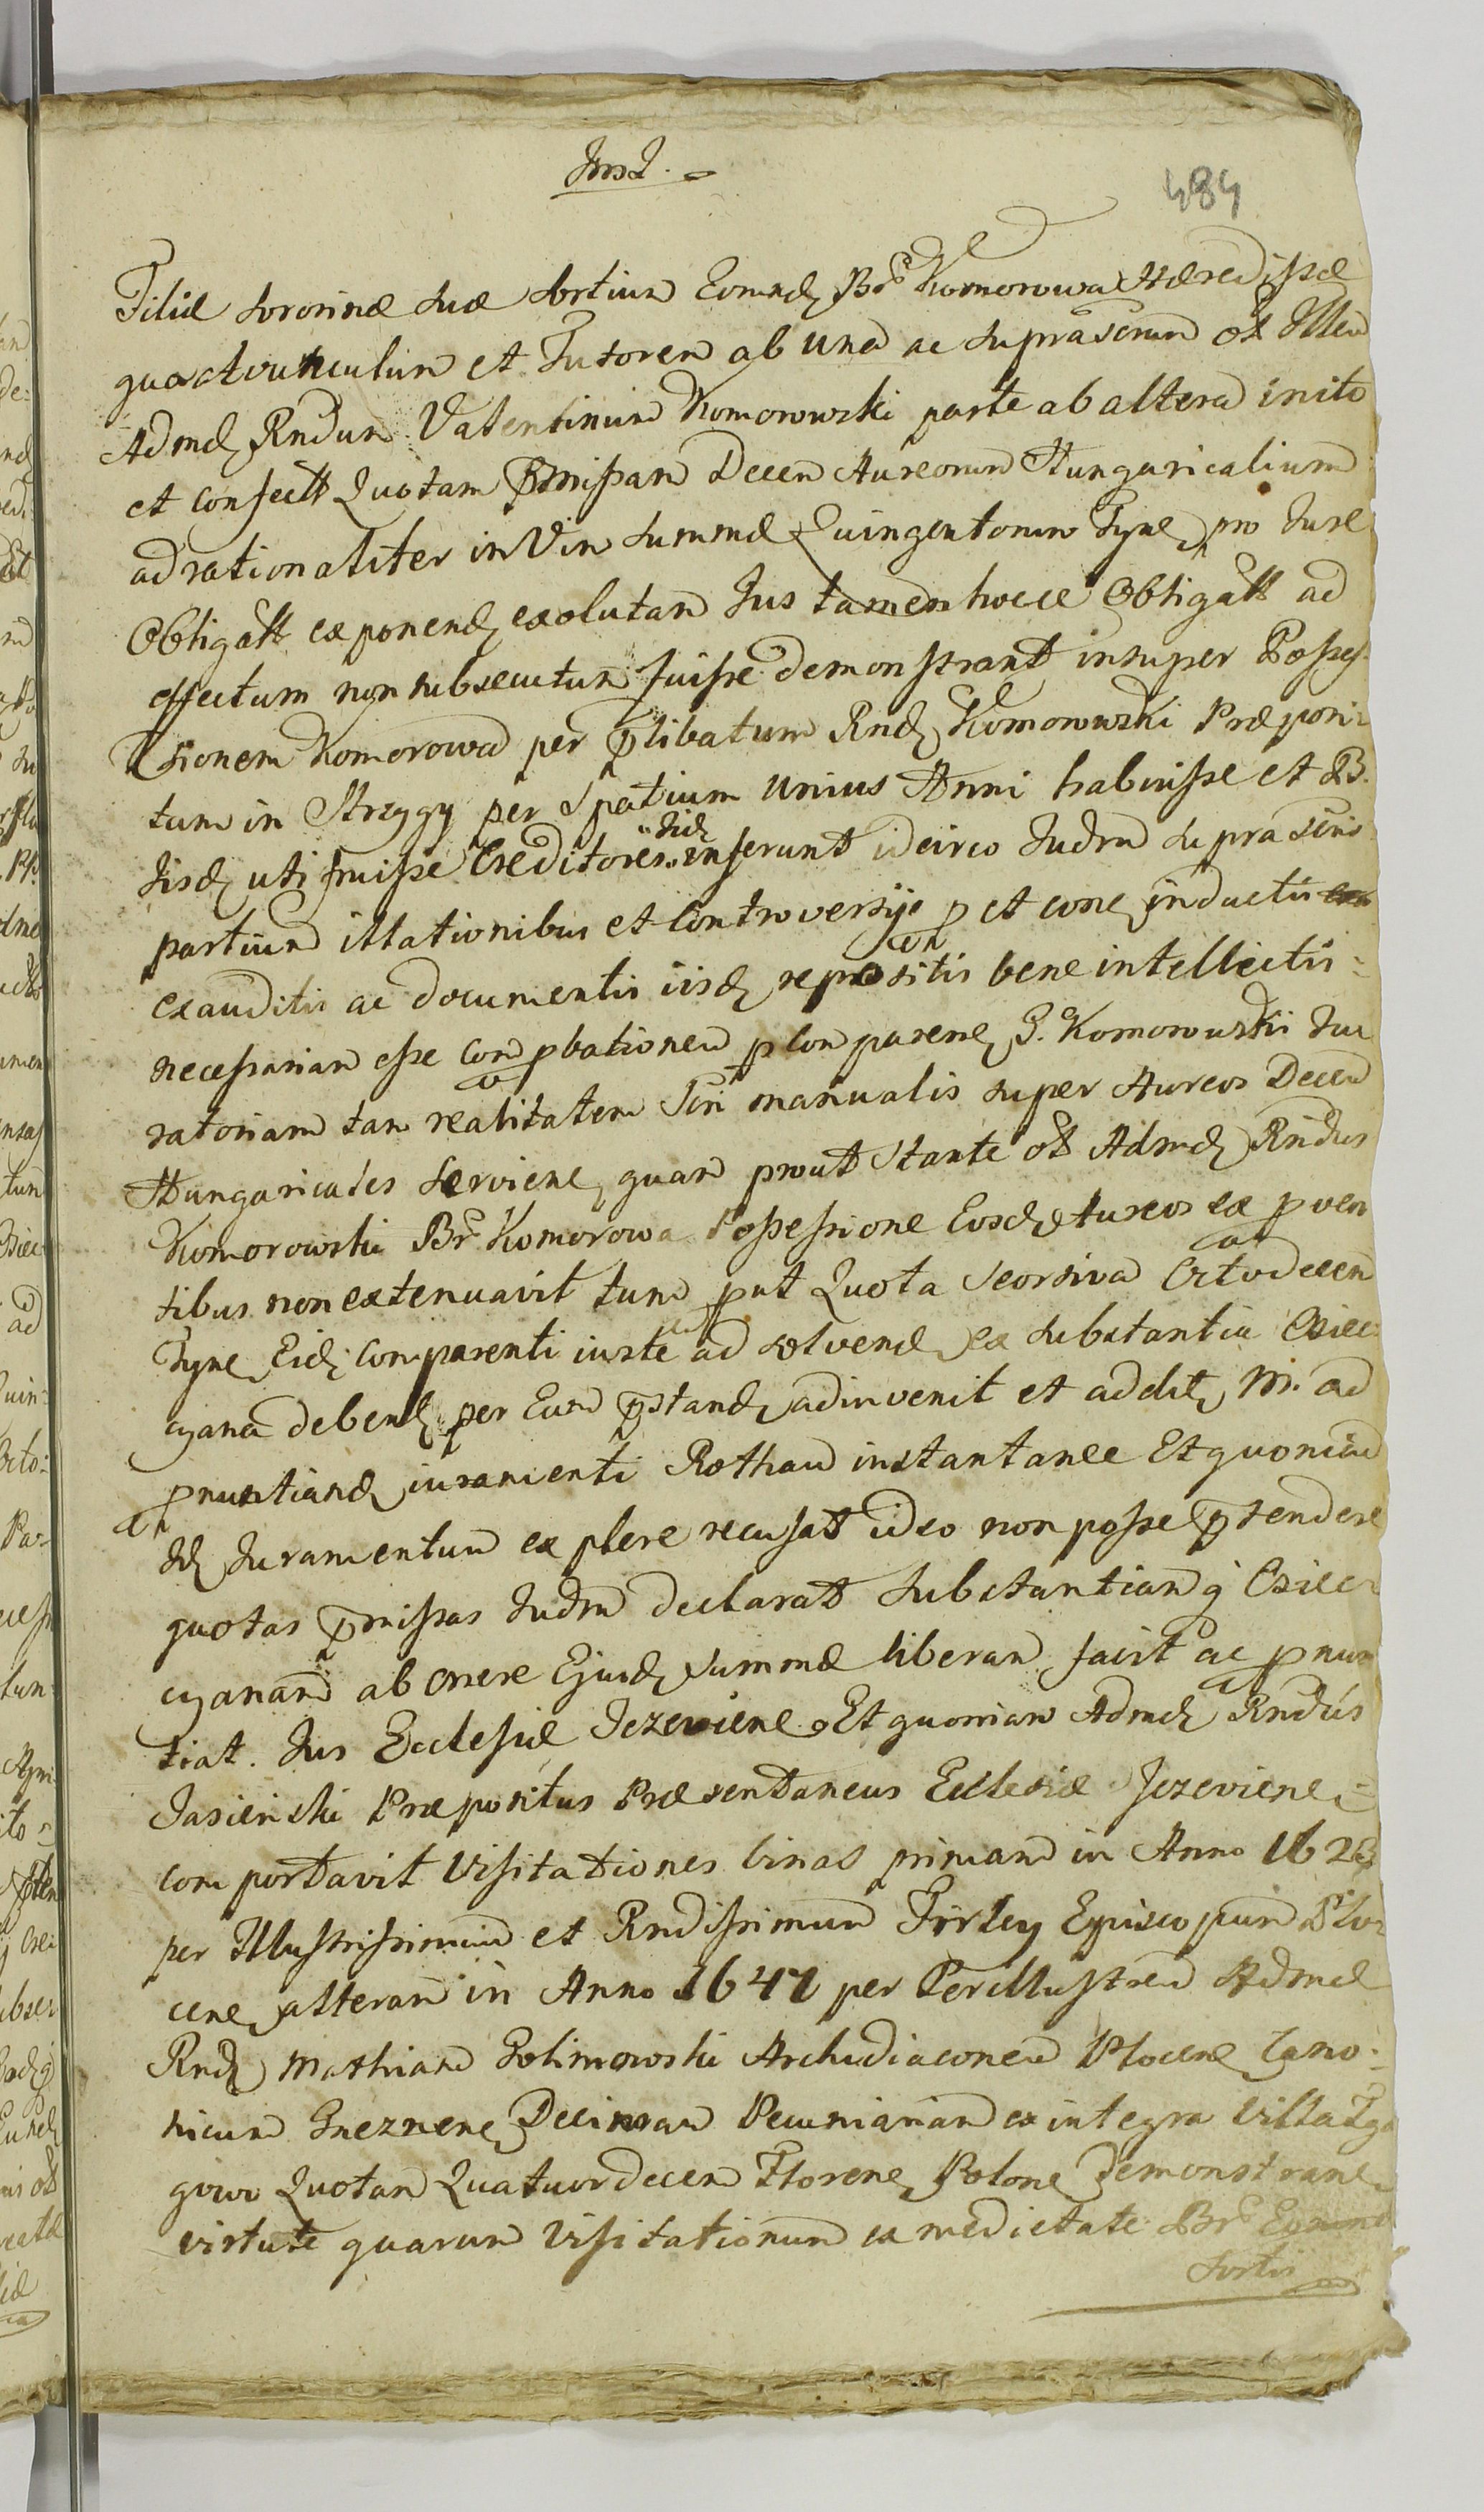 Inst.
484
Filiæ sororinæ suæ sortium Eorund Br Komorowa Hæredissæ
qua Avunculum et Tutorem ab una ac suprascrum ol Illem
Admd Rndum Valentinum Komorowski parte ab altera inito
et confectt Quotam Pmissam Decem Aureorum Hungaricalium
ad rationaliter in Vim summæ Quingentorum Tyne pro Jure
Obligatt exponend exolutam Jus tamen hocce Obligatt ad
effectum non subsecutum fuisse demonstrant insuper Posses-
sionem Komorowa per Plibatum Rnd Komorowski Præposi-
tum in Strzygy per Spatium Unius Anni habuisse et B.
Iisd uti fruisse Creditores Iid inferunt idcirco Judm suprascris
partium illationibus et Controversijs p et cone inductis
exauditis ac documentis iisd repositis bene intellectis
necessariam esse Compbationem p Comparene G. Komorowski Ju
ratoriam tam realitatem Scri manualis super Aureos Decem
Hungaricales Serviene, quam prout Stante ol Admd Rndus
Komorowski Br Komorowa Possessione Eosd Aureos ex pven
tibus non extenuavit tum put Quota Seorsiva Octodecem
Tyne Eid Comparenti iuste ad solvend ex substantia Osiec
cyana debent per Eund pstand adinvenit et addit M. ad
pnuntiand iuramenti Rotham instantanee Et quoniam
Id Juramentum explere recusat ideo non posse ptendere
quotas pmissas Judm declarat Substantiam G Osiec
cyanam ab onere Ejusd Summæ liberam facit ac pnun
tiat. Jus Ecclesiæ Jezeviene. Et quoniam Admd Rndus
Jasienski Præpositus Præsentaneus Ecclesiæ Jezeviene
comportavit Visitationes binas primam in Anno 1623
per Illustrissimum et Rndissimum Firley Episcopum Plo
cene, alteram in Anno 1641 per Perillustrem Admd
Rnd Mathiam Golimowski Archidiaconem Plocene Cano
nicum Gneznene, Decimam Pecuniariam ex integra Villa
gowo Quotam Quatuordecem Florene, Polone Demonstrane
virtute quarum Visitationum ex medietate Br
Sortis